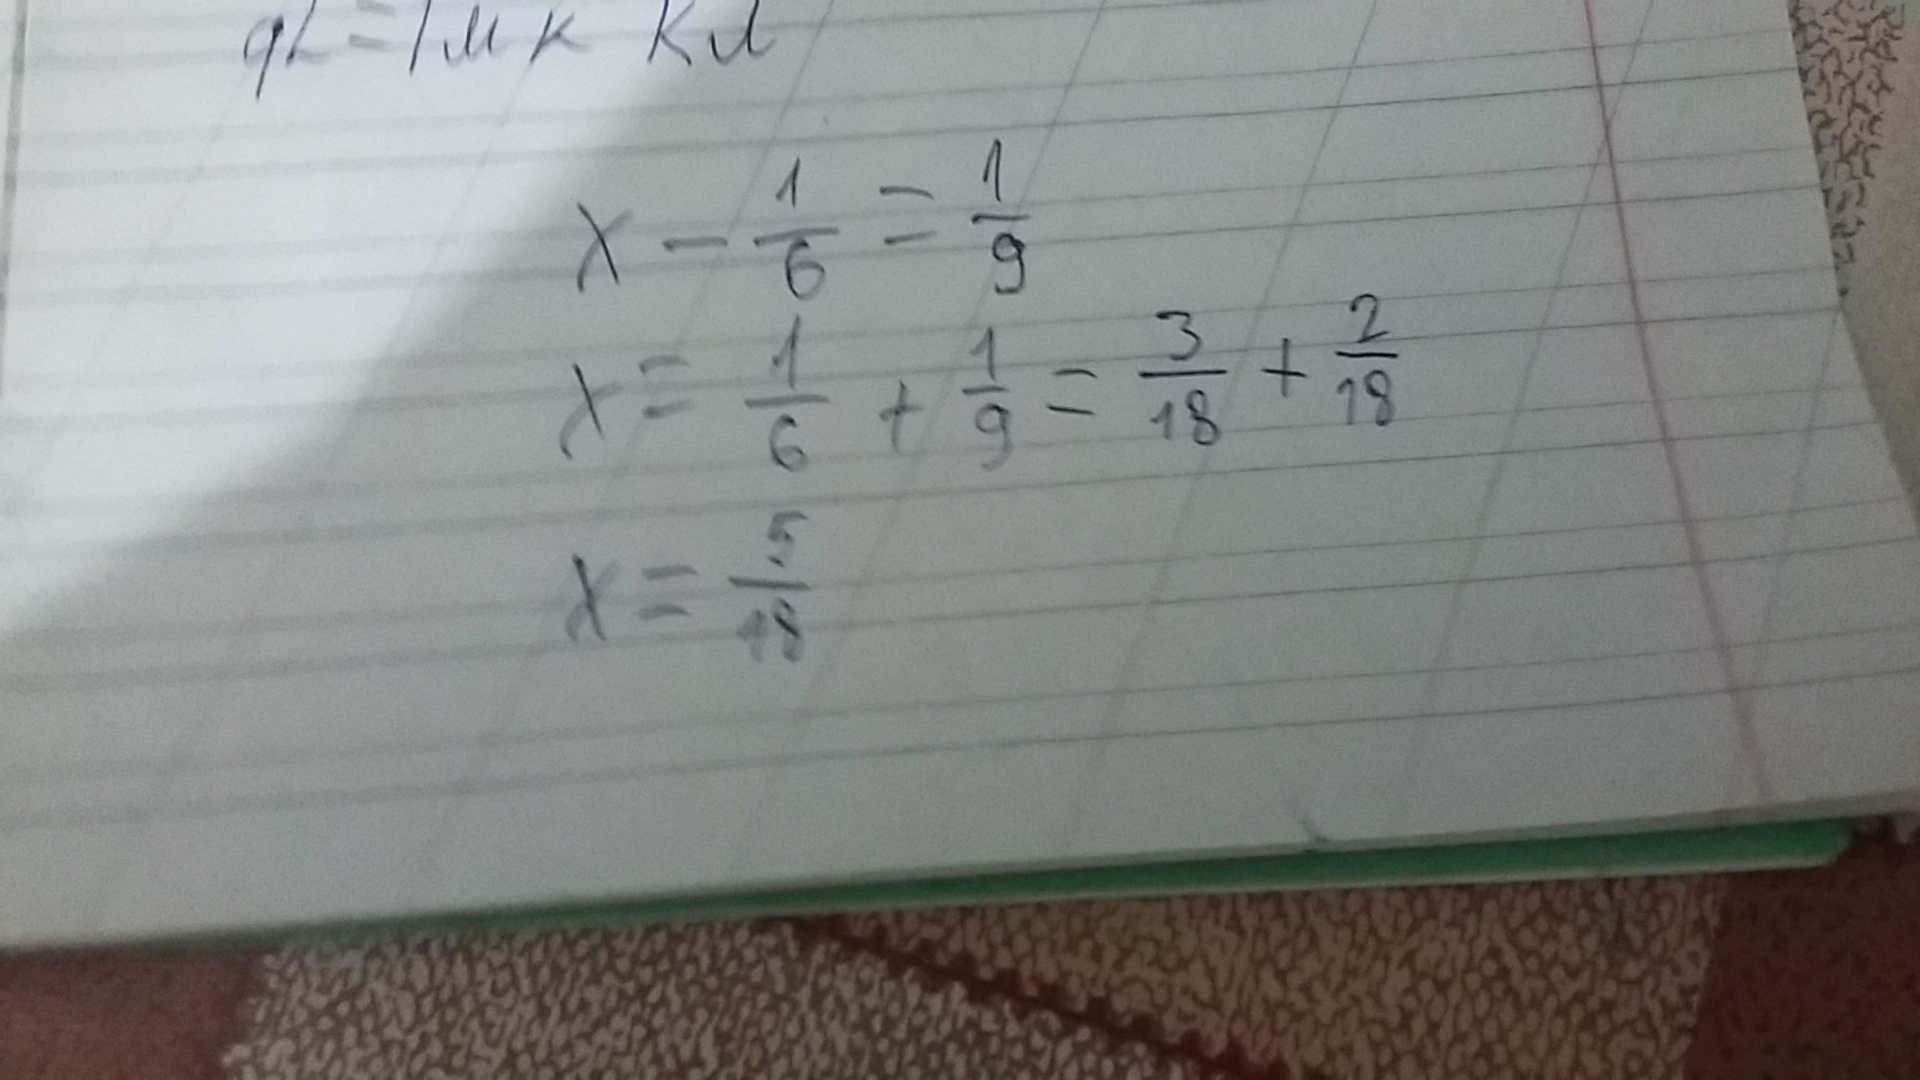 q2=1мк Кл
x - 1/6 = 1/9
x = 1/6 + 1/9 = 3/18 + 2/18
x = 5/18